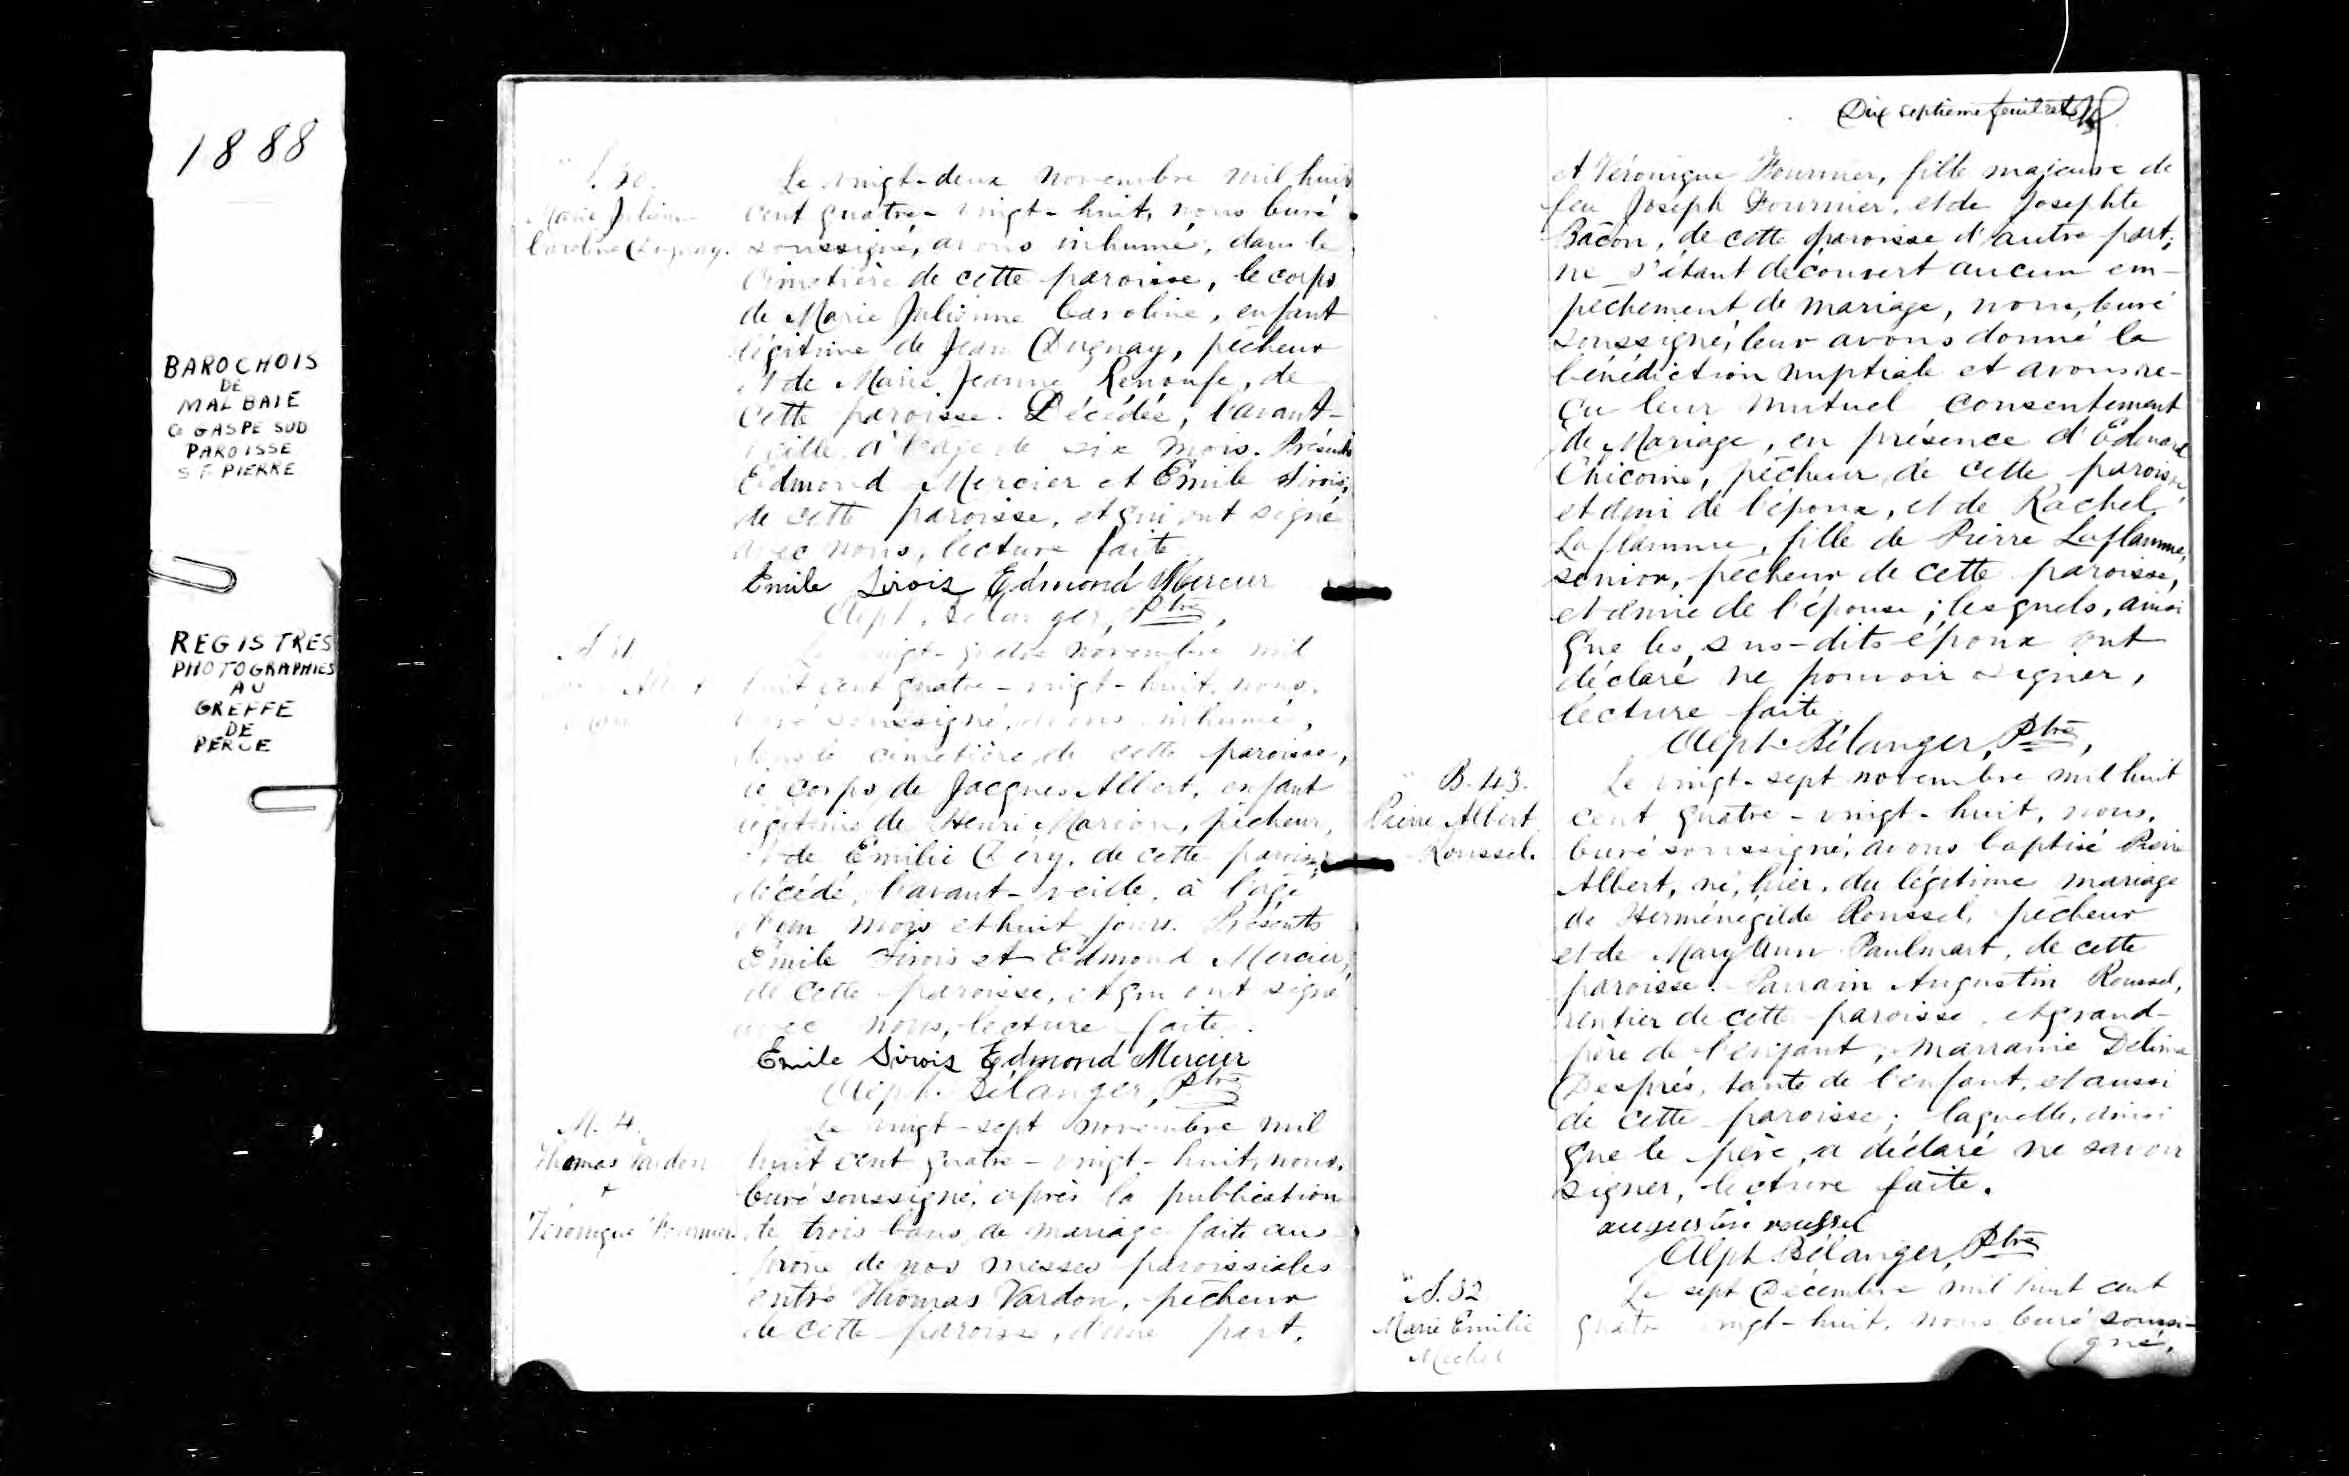 1888
BAROCHOIS
DE
MAL BAIE
Co GASPE SUD
PAROISSE
ST. PIERRE
REGISTRES
PHOTOGRAPHIES
AU
GREFFE
DE
PERCE
S. 30.
Marie Julienne
Caroline Duguay.
Le vingt-deux novembre mil huit
cent quatre-vingt-huit, nous curé
soussigné, avons inhumé, dans le
cimetière de cette paroisse, le corps
de Marie Julienne Caroline, enfant
légitime de Jean Duguay, pêcheur
et de Marie Jeanne Renoufe, de
cette paroisse. Décédée, l'avant-
veille à l'age de six mois. Présents
Edmond Mercier et Emile Sirois,
de cette paroisse, et qui ont signé
avec nous, lecture faite.
Emile Sirois Edmond Mercier
Alph. Bélanger, Ptre,
S. 31
Albert
Le vingt-quatre novembre mil
huit cent quatre-vingt-huit, nous,
curé soussigné, avons inhumé,
dans le cimetière de cette paroisse,
le corps de Jacques Albert, enfant
légitime de Henri Marion, pêcheur,
et de Emilie Déry, de cette paroisse,
décédé, l'avant-veille, à l'age
d'un mois et huit jours. Présents
Emile Sirois et Edmond Mercier,
de cette paroisse, et qui ont signé
avec nous, lecture faite.
Emile Sirois Edmond Mercier
Alph. Bélanger, Ptre
M. 4.
Thomas Vardon
+
Véronique Fournier
Le vingt-sept novembre mil
huit cent quatre-vingt-huit, nous,
curé soussigné, après la publication
de trois bans de mariage faite au
prône de nos messes paroissiales
entre Thomas Vardon, pêcheur
de cette paroisse, d'une part,
Dix septieme feuillet
et Véronique Fournier, fille majeure de
feu Joseph Fournier, et de Josephte
Bacon, de cette paroisse d'autre part;
ne s'étant découvert aucun em-
pêchement de mariage, nous, curé
soussigné, leur avons donné la
bénédiction nuptiale et avons re-
çu leur mutuel consentement
de Mariage, en présence d'Edouard
Chicoine, pêcheur, de cette paroisse,
et ami de l'époux, et de Rachel
Laflamme, fille de Pierre Laflamme,
senior, pêcheur de cette paroisse,
et amie de l'épouse; lesquels, ainsi
que les sus-dits époux ont
déclaré ne pouvoir signer,
lecture faite.
Alph. Bélanger, Ptre,
B. 43.
Pierre Albert
Roussel.
Le vingt-sept novembre mil huit
cent quatre-vingt-huit, nous,
curé soussigné, avons baptisé Pierre
Albert, né, hier, du légitime mariage
de Herménégilde Roussel, pêcheur
et de Mary Ann Paulmart, de cette
paroisse. Parrain Augustin Roussel,
rentier de cette paroisse, et grand-
père de l'enfant; marraine Délima
Després, tante de l'enfant, et aussi
de cette paroisse; laquelle, ainsi
que le père, a déclaré ne savoir
signer, lecture faite.
augustin roussel
Alph. Bélanger, Ptre
S. 32
Marie Emilie
Michel
Le sept Décembre mil huit cent
quatre vingt-huit, nous curé soussi-
gné,